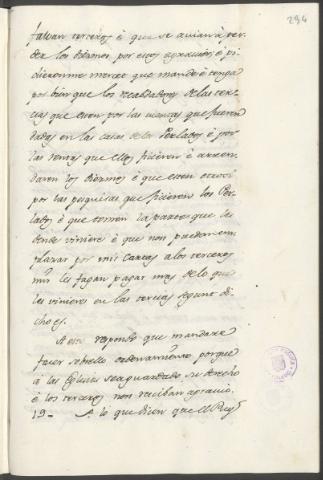 294
faban terceros é que se avian à per-
der los diesmos por esos agravios é pi-
dieronme merced que mande é tenga
por bien que los recabdadores de las ter-
cias que esten por las cuantas que fueren
dadas en las casas de los Perlados é por
las rentas que ellos ficieren é arren-
daren los diesmos é que esten otrosi
por las pesquisas que ficieren los Per-
lados é que tomen la parte que les
dende viniere é que non puedan em-
plazar por mis cartas a los terceros
nin les fagan pagar mas de lo que
les viniere en las tercias segunt di-
cho es.
A esto respondo que mandaré
facer sobrello ordenamiento porque
a las Eglesias sea guardado su derecho
é los terceros non reciban agravio.
19– A lo que dicen que el Rey